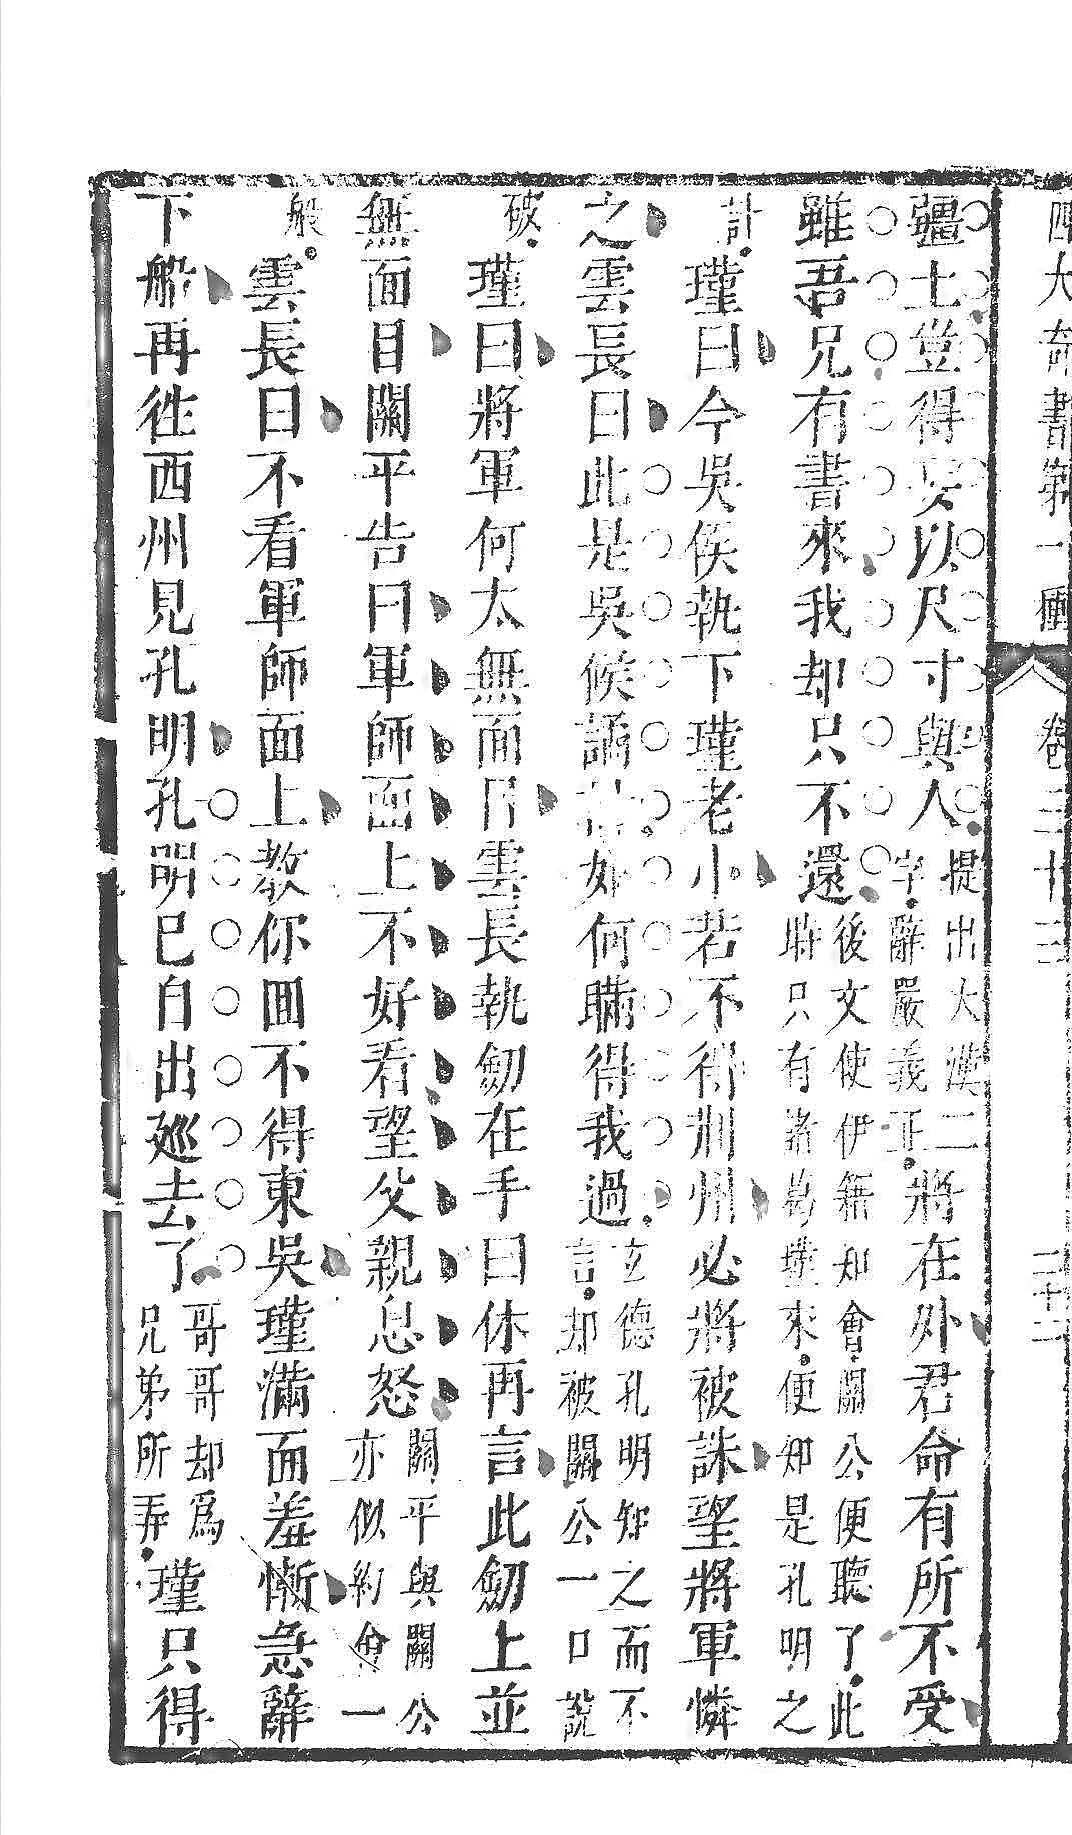 四大奇書第一種 卷三十三 二十二
疆土豈得妄以尺寸與人提出大漢二字辭嚴義正將在外君命有所不受
雖吾兄有書來我却只不還後文使伊籍知會關公便聽了此時只有諸葛瑾來便知是孔明之
計瑾曰今吳侯執下瑾老小若不得荆州必將被誅望將軍憐
之雲長曰此是吳候譎計如何瞞得我過玄德孔明知之而不言却被關公一口說
破瑾曰將軍何太無面目雲長執劒在手曰休再言此劒上並
無面目關平告曰軍師面上不好看望父親息怒關平與關公亦似約會一
般雲長曰不看軍師面上教你囬不得東吳瑾滿面羞慚急辭
下船再徃西州見孔明孔明已自出廵去了哥哥却爲兄弟所弄瑾只得